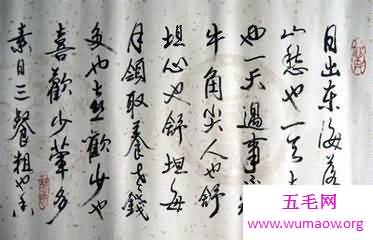 日出东海落
山愁也一天
也一天遇事不
牛角尖人也舒
坦心也舒坦每
月领取养老钱
多也喜欢少也
喜歡少荤多
素日三餐粗也香
五毛网
www.wumaow.org